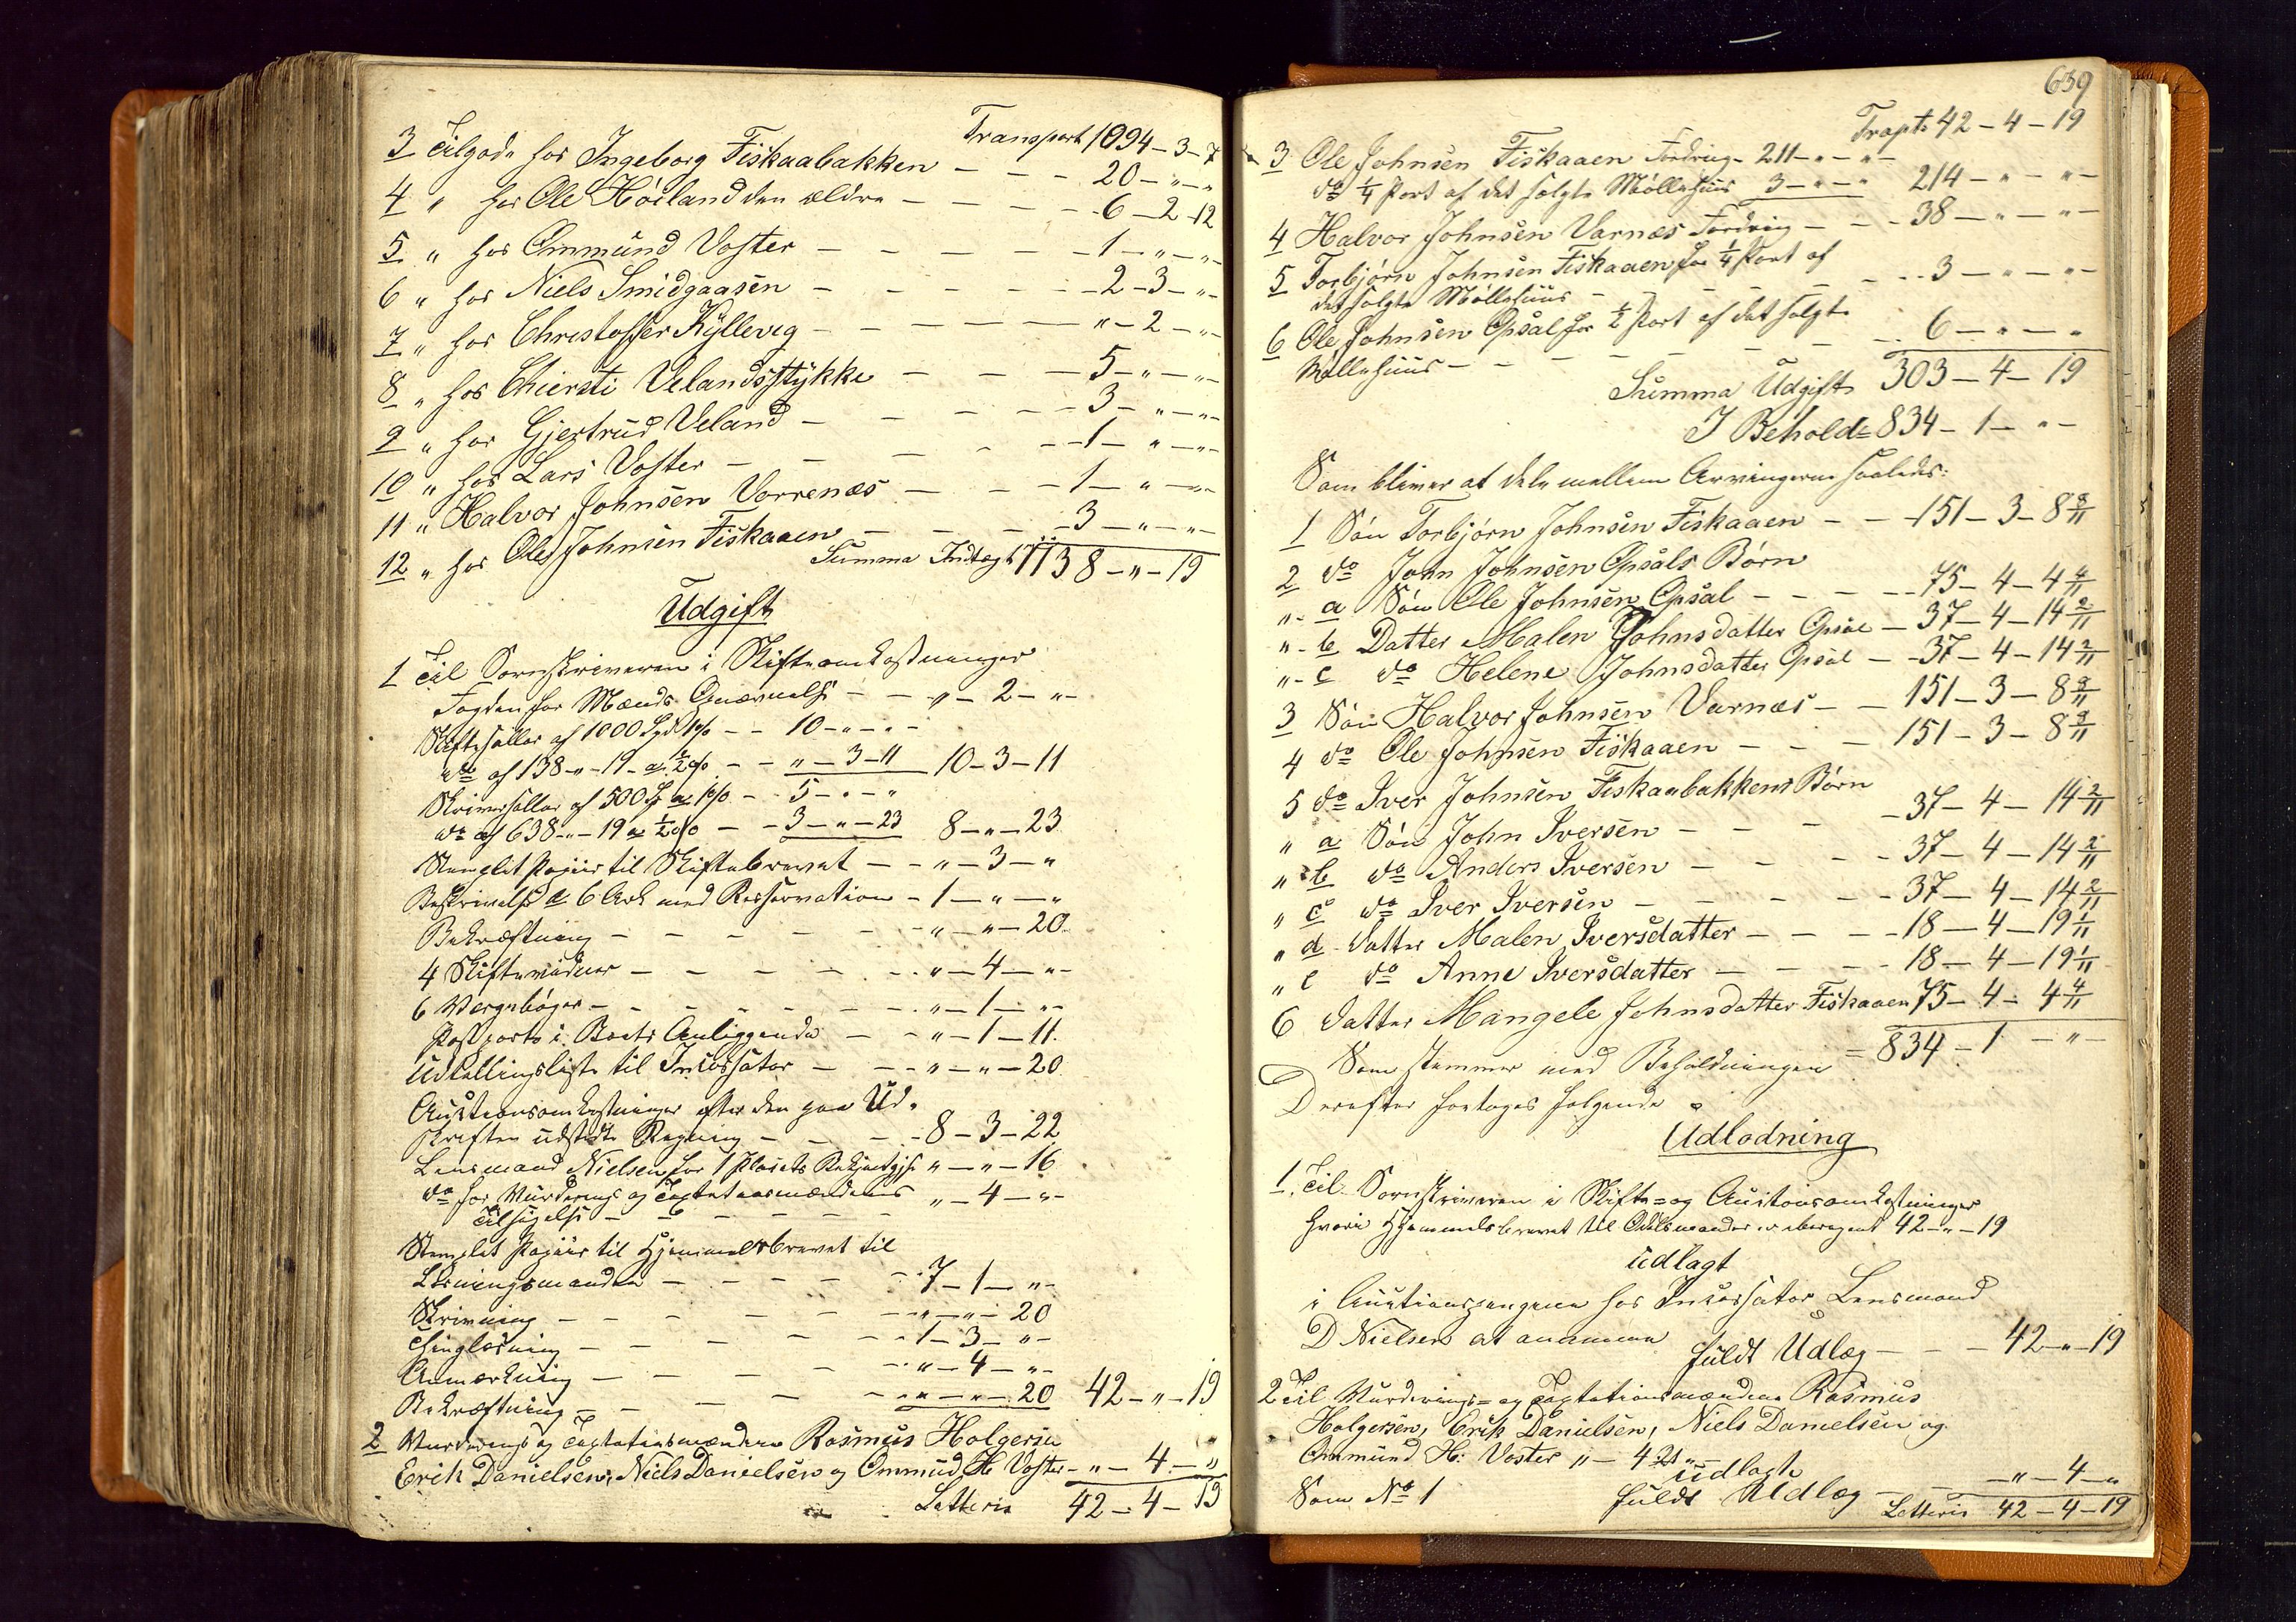 Transport 1094 - 3 - 7
3 Tilgode hos Ingeborg Fiskaabakken - - - 20 - " - "
4 " hos Ole Höiland den ældre - - - - 6 - 2 - 12
5 " hos Ommund Voster - - - - - 1 - " - " -
6 " hos Niels Smidgaasen - - - - - 2 - 3 - " -
7 " hos Christoffer Kyllevig - - - - - " - 2 - " -
8 " hos Chiersti Velandsstykke - - - 5 - " - " -
9 " hos Gjertrud Veland - - - - - 3 - " - " -
10 " hos Lars Voster - - - - - 1 - " - " -
11 " Halvor Johnsen Vorrenæs - - - 1 - " - " -
12 " hos Ole Johnsen Fiskaaen - - - - 3 - " - " -
Summa Indtægt 1138 - " - 19
Udgift
1 Til Sorenskriveren i Skifteomkostninger
Fogden for Mænds Opnævnelse - - " - 2 - " -
Skiftesallar af 1000 Spd 1 p% - - 10 - " - " -
do af 138 - " - 19 - a ½ p% - - " - 3 - 11 10 - 3 - 11
Skriversallar af 500 Sp a 1 p% - - 5 - " - "
do af 638 - " - 19 a ½ p% - - 3 - " - 23 8 - " - 23
Stemplet Papiir til Skiftebrevet - - " - 3 - "
Beskrivelse a 6 Ark med Resservation - 1 - " - "
Bekræftning - - - - - - " - " - 20.
4 Skiftevidner - - - - - - " - 4 - " -
6 Værgebøger - - - - - - " - 1 - " -
Postporto i Boets Anliggende - - " - 1 - 11.
Udtællingsliste til Incassator - - - " - " - 20
Auctionsomkostninger efter den paa Ud-
skriften udstedte Regning - - - - 8 - 3 - 22
Lensmand Nielsen for 1 Placats Bekjentgjse " - " - 16
do for Vurderings og Taxtationsmændenes " - 4 - " -
Tilsigelse - - - - - -
Stemplet Papiir til Hjemmelsbrevet til
Løsningsmanden - - - - - 7 - 1 - " -
Skrivning - - - - - - " - " - 20
Thinglæsning - - - - - 1 - 3 - " -
Anmærkning - - - - - " - 4 - " -
Bekræftning - - - - - " - " - 20 42 - " - 19
2 Vurderings og Taxtationsmændene Rasmus Holgersen
Erik Danielsen, Niels Danielsen og Ommund H Voster - " - 4 - "
Latteris 42 - 4 - 19
639
Trapt 42 - 4 - 19
3 Ole Johnsen Fiskaaen Fordring - 211 - " - " -
do ¼ Part af det solgte Møllehuus 3 - " - " 214 - " - " -
4 Halvor Johnsen Varnæs Fordring - - 38 - " - " -
5 Torbjörn Johnsen Fiskaaen for ¼ Part af
det solgte Møllehuus - - - - - 3 - " - " -
6 Ole Johnsen Opsal for ½ Part af det solgte
Møllehuus - - - - - - 6 - " - "
Summa Udgift 303 - 4 - 19
I Behold = 834 - 1 - " -
Som bliver at dele mellem Arvingerne saaledes:
1 Sön Torbjörn Johnsen Fiskaaen - - 151 - 3 - 8 9/11
2 do John Johnsen Opsals Börn
" - a Sön Ole Johnsen Opsal - - - - 75 - 4 - 4 4/11
" - b Datter Malen Johnsdatter Opsal - 37 - 4 - 14 2/11
" - c do Helene Johnsdatter Opsal - - 37 - 4 - 14 2/11
3 Sön Halvor Johnsen Varnæs - - 151 - 3 - 8 9/11
4 do Ole Johnsen Fiskaaen - - - 151 - 3 - 8 9/11
5 do Iver Johnsen Fiskaabakkens Börn
" a Sön John Iversen - - - - 37 - 4 - 14 2/11
" b do Anders Iversen - - - - 37 - 4 - 14 2/11
" c do Iver Iversen - - - - 37 - 4 - 14 2/11
" d Datter Malen Iversdatter - - - 18 - 4 - 19 1/11
" e do Anne Iversdatter - - - - 18 - 4 - 19 1/11
6 Datter Mangele Johnsdatter Fiskaaen 75 - 4 - 4 4/11
Som stemmer med Beholdningen = 834 - 1 - " -
Derefter foretages følgende
Udlodning
1, Til Sorenskriveren i Skifte= og Auctionsomkostninger
hvori Hjemmelsbrevet til er iberegnet 42 - " - 19
udlagt
i Auctionspengene hos Incassator Lensmand
D Nielsen at annamme
fuldt Udlæg - - - 42 - " - 19
2 Til Vurderings= og Taxtationsmændene Rasmus
Holgersen, Erik Danielsen, Niels Danielsen og
Ommund H: Voster " - 4 ₰ " -
udlagt
Som No 1 fuldt Udlæg - - " - 4 - "
Latteris 42 - 4 - 19